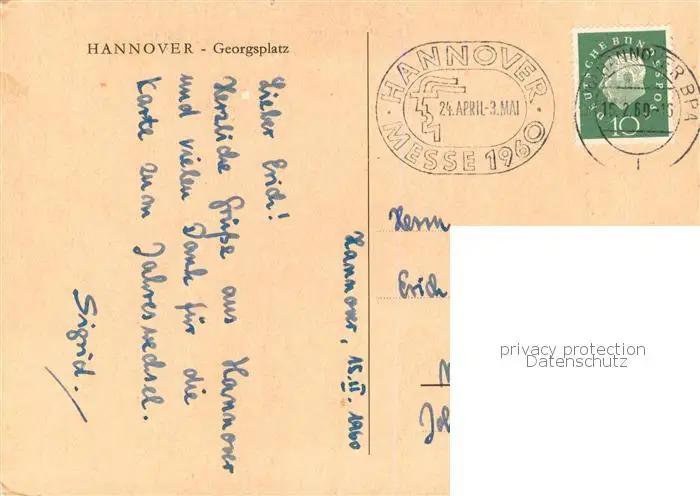 HANNOVER - Georgsplatz
Lieber Erich!
Herzliche Grüße aus Hannover
und vielen Dank für die
Karte zum Jahreswechsel.
Sigrid.
Hannover, 15.II.1960
HANNOVER
24. APRIL - 3. MAI
MESSE 1960
DEUTSCHE BUNDESPOST
10
HANNOVER BPA
15.2.60-15
Herrn
Erich
privacy protection
Datenschutz